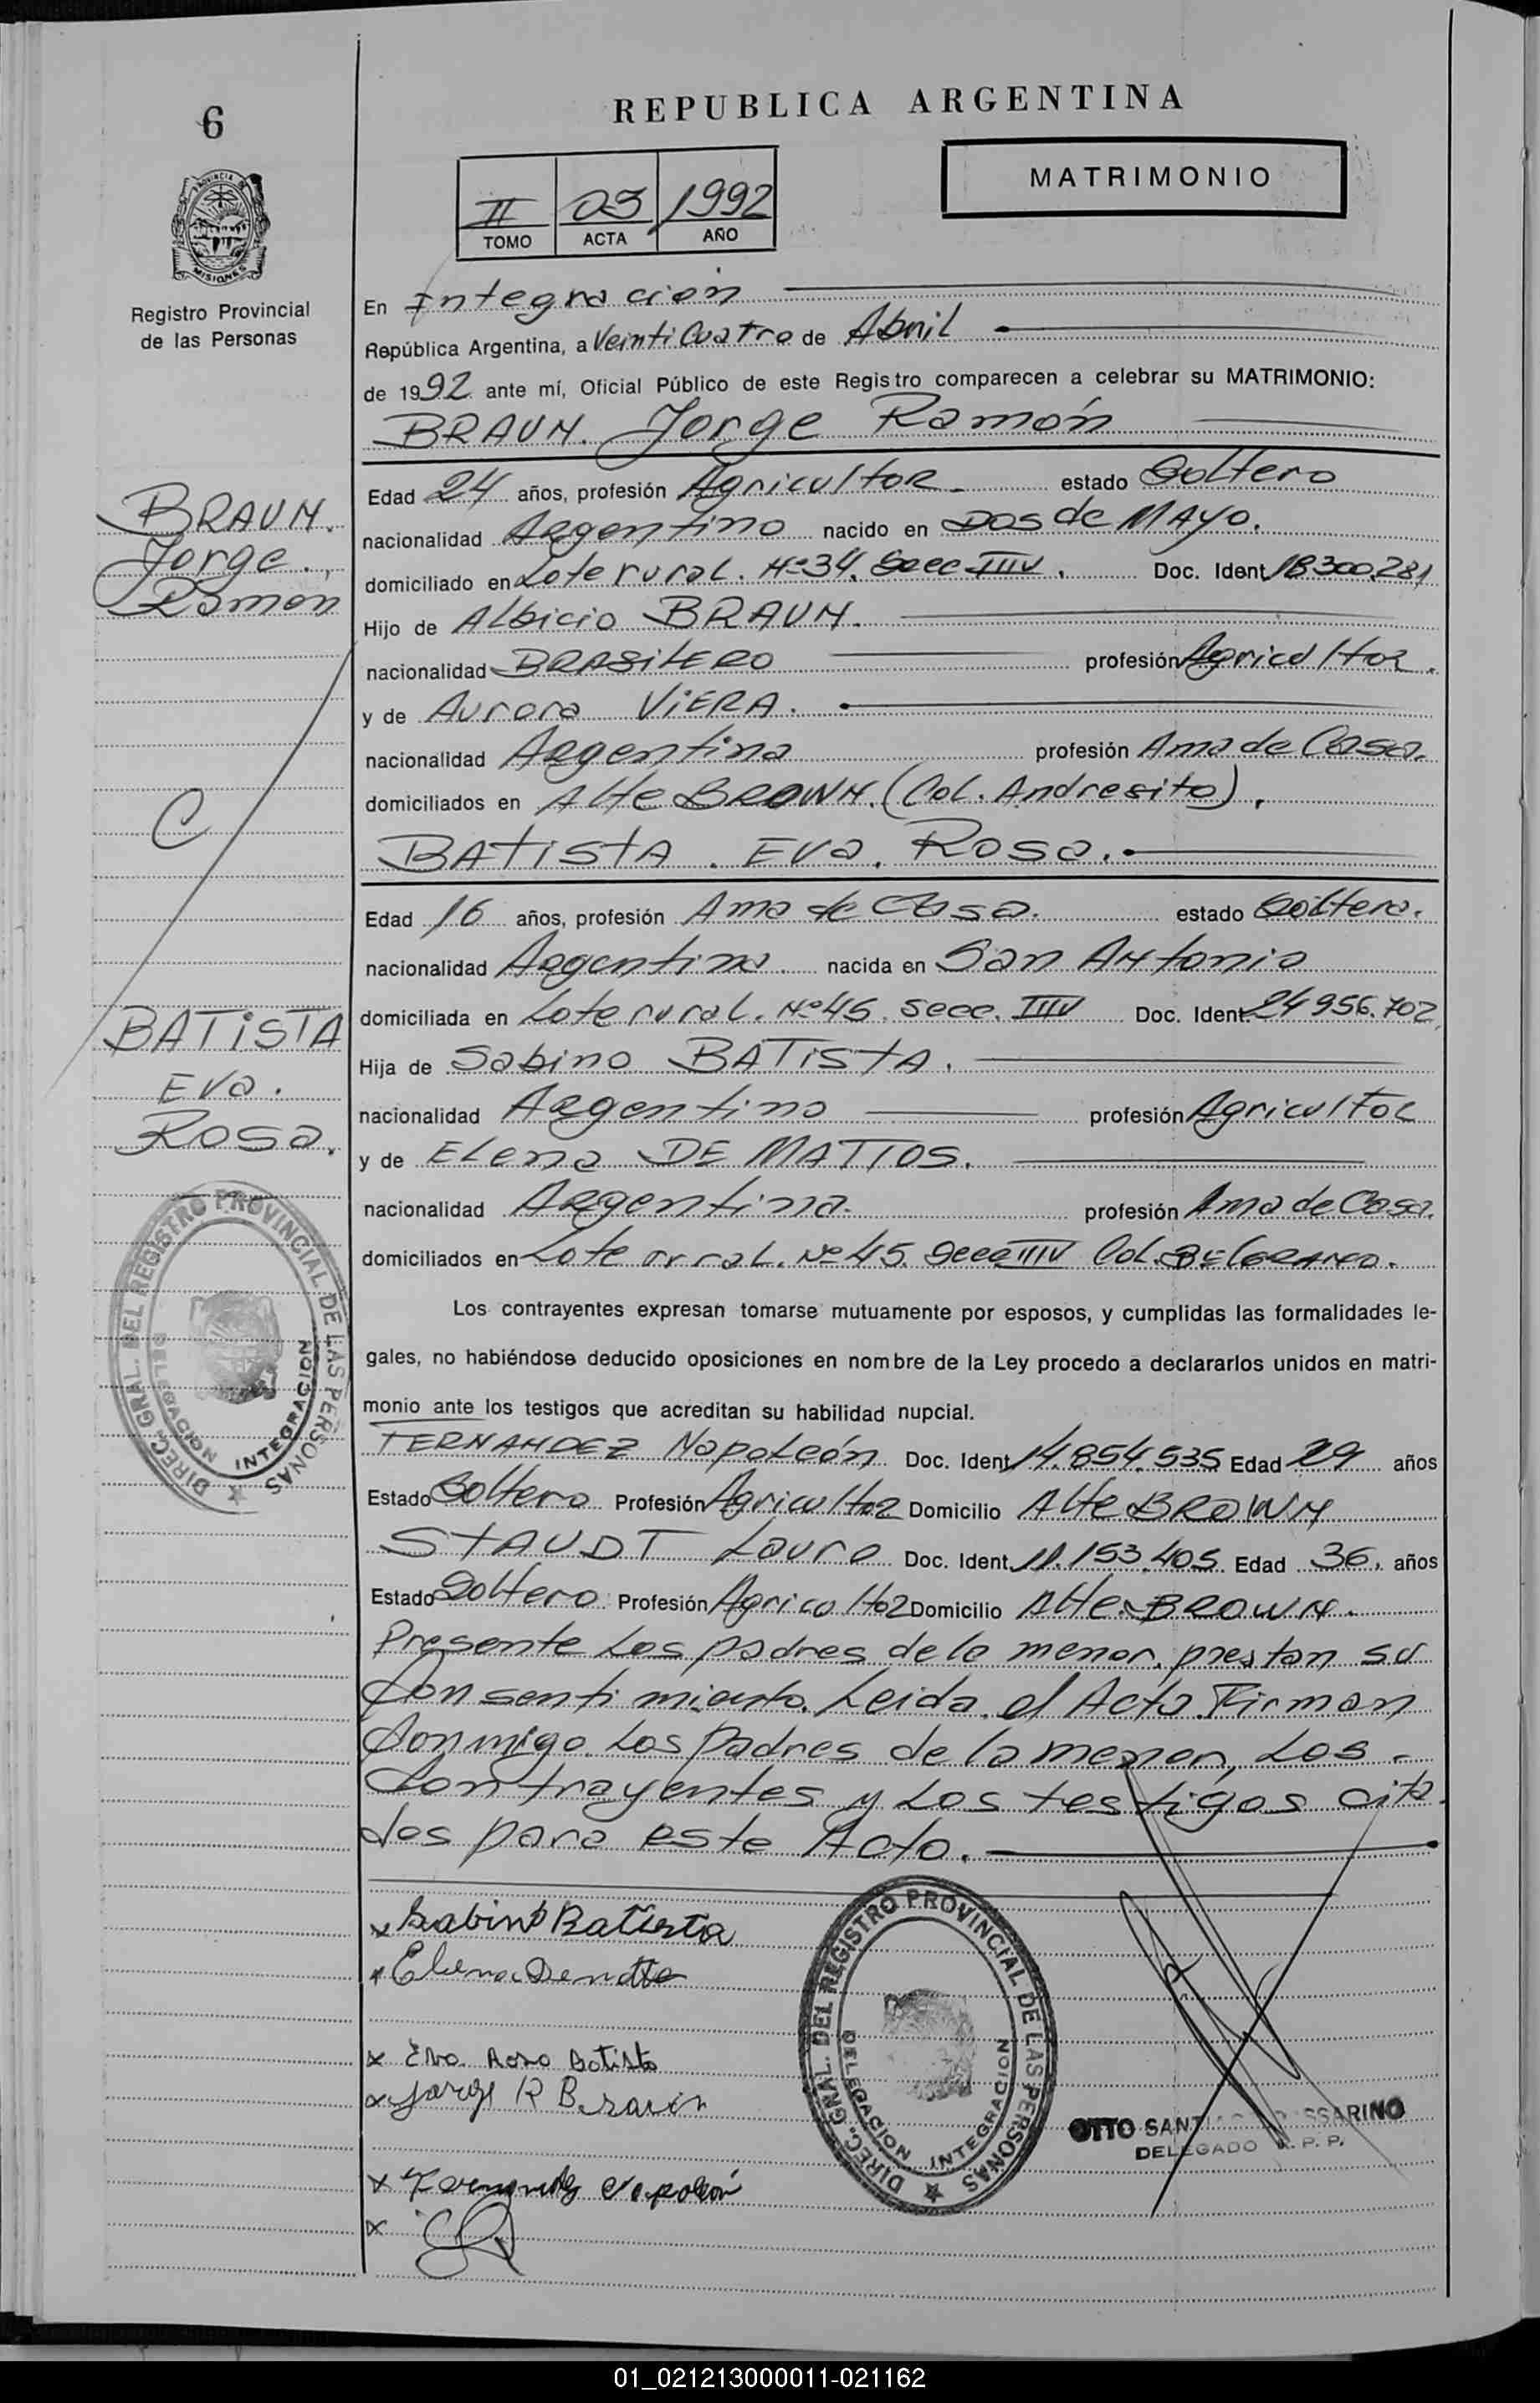 6
REPUBLICA ARGENTINA
MATRIMONIO
II 03 1992
TOMO ACTA AÑO
PROVINCIA DE MISIONES
Registro Provincial
de las Personas
En Integracion
República Argentina, a Veinti Cuatro de Abril
de 1992 ante mí, Oficial Público de este Registro comparecen a celebrar su MATRIMONIO:
BRAUN. Jorge Ramón
BRAUN.
Jorge.
Ramón
Edad 24 años, profesión Agricultor estado Soltero
nacionalidad Argentino nacido en DOS de MAYO.
domiciliado en Lote rural. Nº 34. Secc. IIIV. Doc. Ident 18.300.281
Hijo de Albicio BRAUN.
nacionalidad BRASILERO profesión Agricultor.
y de Aurora VIERA.
nacionalidad Argentina profesión Ama de Casa.
domiciliados en Alte BROWN. (Col. Andresito).
C
BATISTA. Eva. Rosa.
Edad 16 años, profesión Ama de Casa. estado Soltera.
nacionalidad Argentina nacida en San Antonio
domiciliada en Lote rural. Nº 45. Secc. IIIV Doc. Ident. 24 956.702
BATISTA
Eva.
Rosa.
Hija de Sabino BATISTA.
nacionalidad Argentino profesión Agricultor
y de Elena DE MATTOS.
nacionalidad Argentina. profesión Ama de Casa.
domiciliados en Lote rural. Nº 45. Secc IIIV Col. BELGRANO.
Los contrayentes expresan tomarse mutuamente por esposos, y cumplidas las formalidades le-
gales, no habiéndose deducido oposiciones en nombre de la Ley procedo a declararlos unidos en matri-
monio ante los testigos que acreditan su habilidad nupcial.
DIREC. GRAL. DEL REGISTRO PROVINCIAL DE LAS PERSONAS
DELEGACION INTEGRACION
FERNANDEZ Napoleón Doc. Ident 14.854.535 Edad 29 años
Estado Soltero Profesión Agricultor Domicilio Alte BROWN
STAUDT Lauro Doc. Ident. 11.153.405 Edad 36. años
Estado Soltero. Profesión Agricultor Domicilio Alte. BROWN.
Presente Los padres de la menor. prestan su
Consentimiento. Leida el Acta Firman
Conmigo Los Padres de la menor, Los
Contrayentes y Los testigos cita
dos para este Acto.
x Sabino Batista
x Elena Dematto
x Eva Rosa Batista
x Jorge R Braun
x Fernandez Napoleón
x
DIREC. GRAL. DEL REGISTRO PROVINCIAL DE LAS PERSONAS
DELEGACION INTEGRACION
OTTO
DELEGADO R. P. P.
01_021213000011-021162